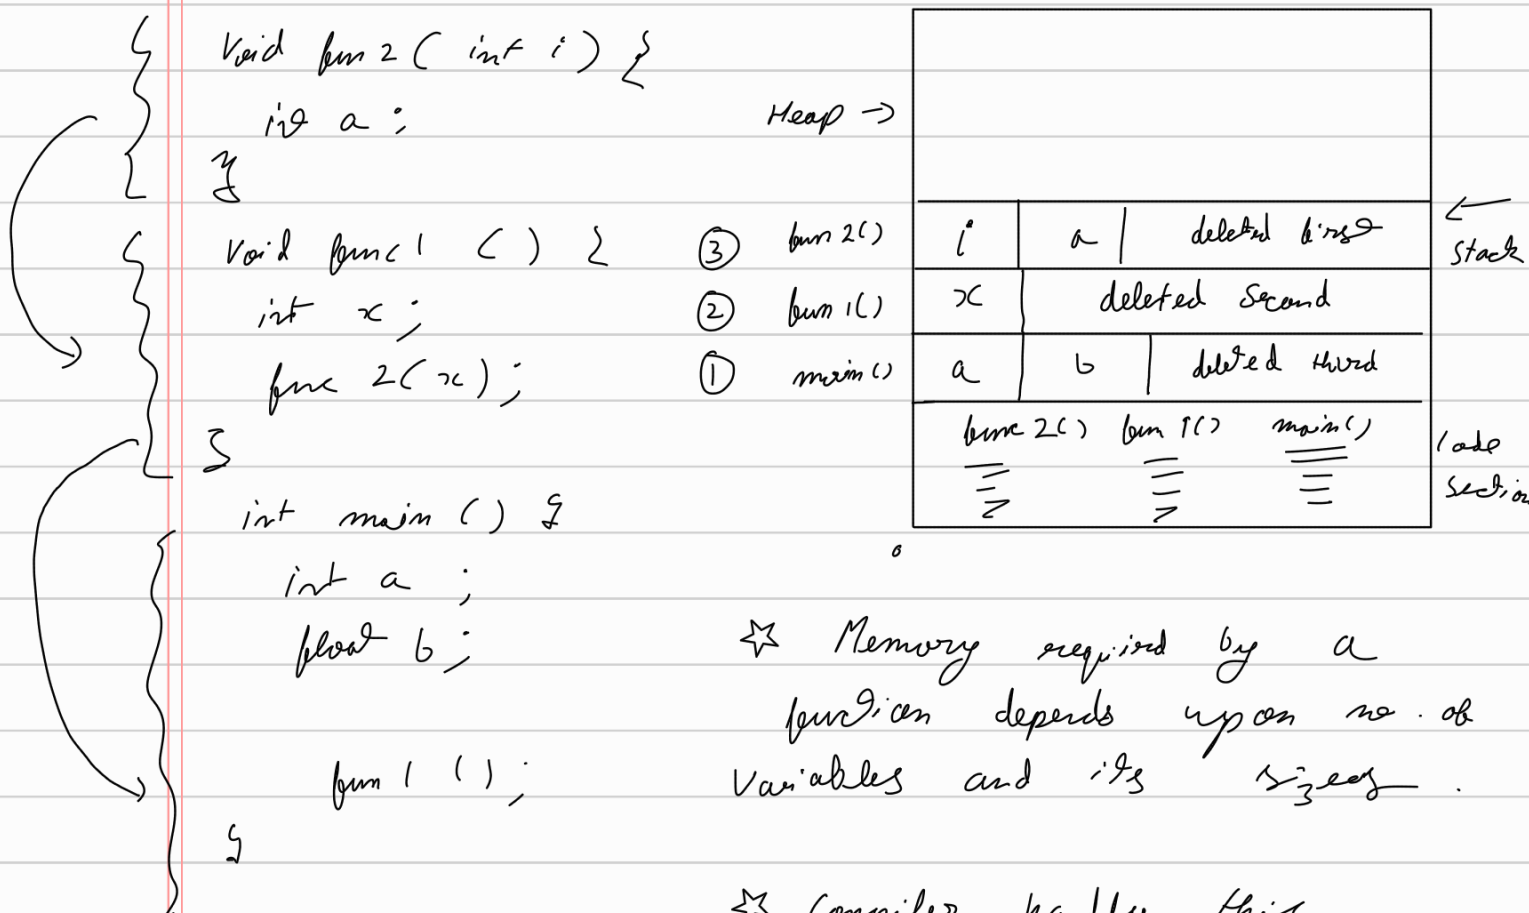 void fun 2 ( int i ) {
int a ;
}
void func 1 ( ) {
int x ;
func 2 ( x ) ;
}
int main ( ) {
int a ;
float b ;
fun 1 ( ) ;
}
Heap →
③ fun 2 ( ) i a deleted first
← Stack
② fun 1 ( ) x deleted second
① main ( ) a b deleted third
func 2 ( ) fun 1 ( ) main ( )
Code
section
0
☆ Memory required by a
function depends upon no . of
variables and its sizes .
☆ Compiler